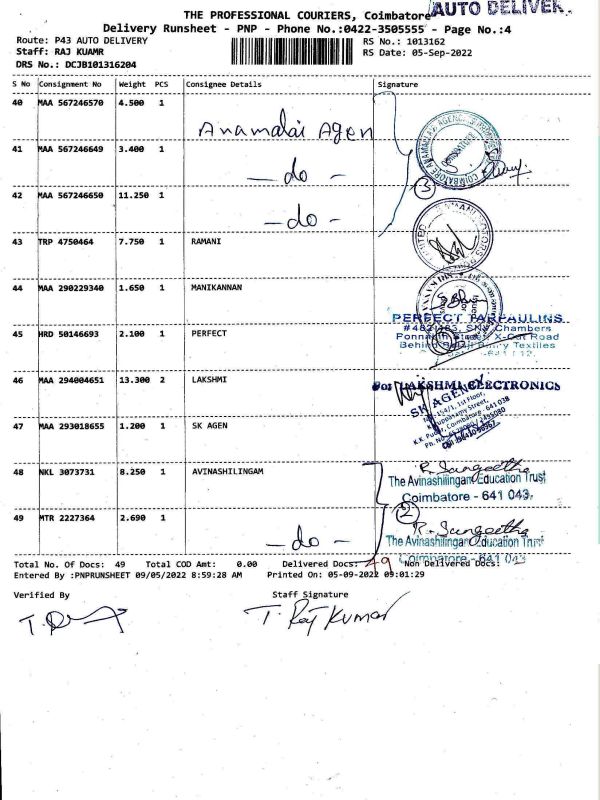 THE PROFESSIONAL COURIERS, Coimbatore
AUTO DELIVER
Delivery Runsheet - PNP - Phone No.:0422-3505555 - Page No.:4
Route: P43 AUTO DELIVERY
RS No.: 1013162
Staff: RAJ KUAMR
RS Date: 05-Sep-2022
DRS No.: DCJB101316204
S No Consignment No Weight PCS Consignee Details Signature
40 MAA 567246570 4.500 1 Anamalai Agen
41 MAA 567246649 3.400 1 - do -
3
42 MAA 567246650 11.250 1 - do -
43 TRP 4750464 7.750 1 RAMANI
44 MAA 290229340 1.650 1 MANIKANNAN
PERFECT TARPAULINS
45 HRD 50146693 2.100 1 PERFECT
Chambers
X-Cut Road
Textiles
46 MAA 294004651 13.300 2 LAKSHMI
For LAKSHMI ELECTRONICS
SK AGENCY
1st Floor,
Coimbatore - 641 038
47 MAA 293018655 1.200 1 SK AGEN
48 NKL 3073731 8.250 1 AVINASHILINGAM
R. Sangeetha
The Avinashilingam Education Trust
Coimbatore - 641 043.
2
49 MTR 2227364 2.690 1 - do -
R. Sangeetha
The Avinashilingam Education Trust
Coimbatore - 641 043
Total No. Of Docs: 49 Total COD Amt: 0.00 Delivered Docs: 49 Non Delivered Docs:
Entered By :PNPRUNSHEET 09/05/2022 8:59:28 AM Printed On: 05-09-2022 09:01:29
Verified By Staff Signature
T. Raj Kumar